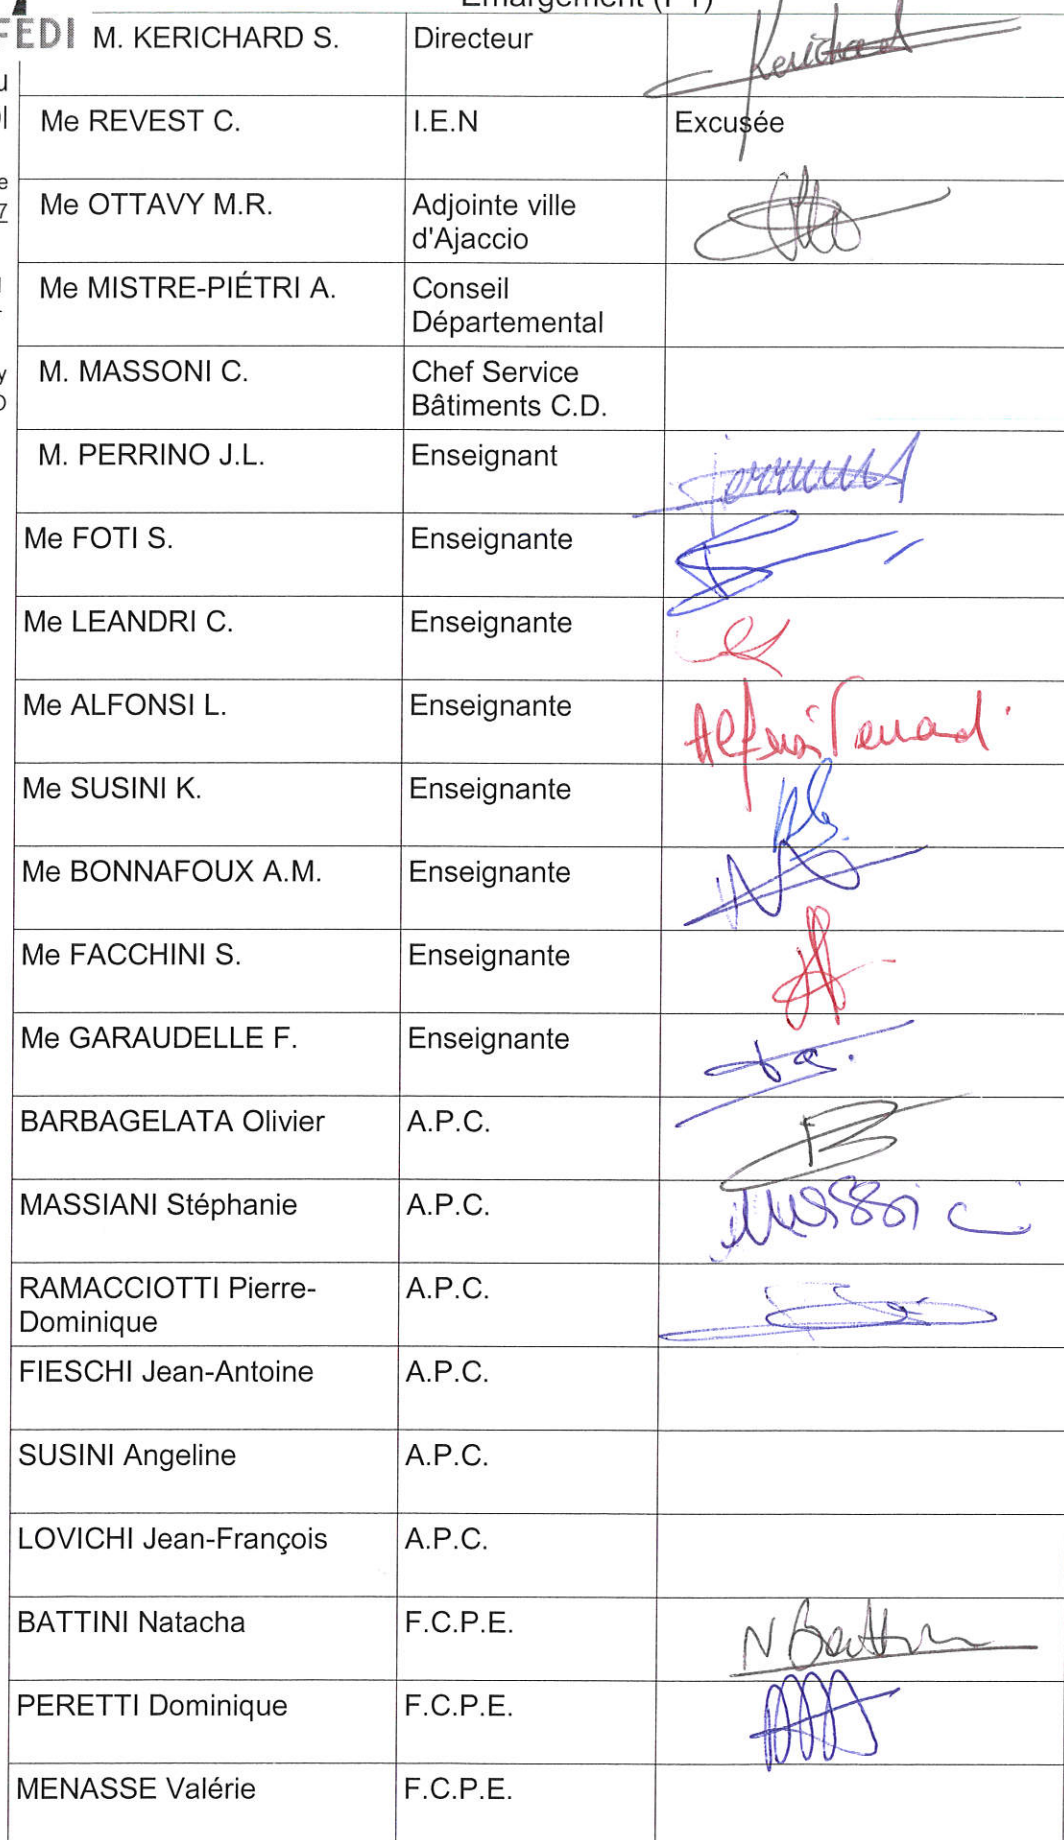 Emargement (P1)
FEDI
M. KERICHARD S. Directeur Kerichard
Me REVEST C. I.E.N Excusée
Me OTTAVY M.R. Adjointe ville
d'Ajaccio
Me MISTRE-PIÉTRI A. Conseil
Départemental
M. MASSONI C. Chef Service
Bâtiments C.D.
M. PERRINO J.L. Enseignant
Me FOTI S. Enseignante
Me LEANDRI C. Enseignante
Me ALFONSI L. Enseignante
Me SUSINI K. Enseignante
Me BONNAFOUX A.M. Enseignante
Me FACCHINI S. Enseignante
Me GARAUDELLE F. Enseignante
BARBAGELATA Olivier A.P.C.
MASSIANI Stéphanie A.P.C.
RAMACCIOTTI Pierre-
Dominique A.P.C.
FIESCHI Jean-Antoine A.P.C.
SUSINI Angeline A.P.C.
LOVICHI Jean-François A.P.C.
BATTINI Natacha F.C.P.E. N Battini
PERETTI Dominique F.C.P.E.
MENASSE Valérie F.C.P.E.